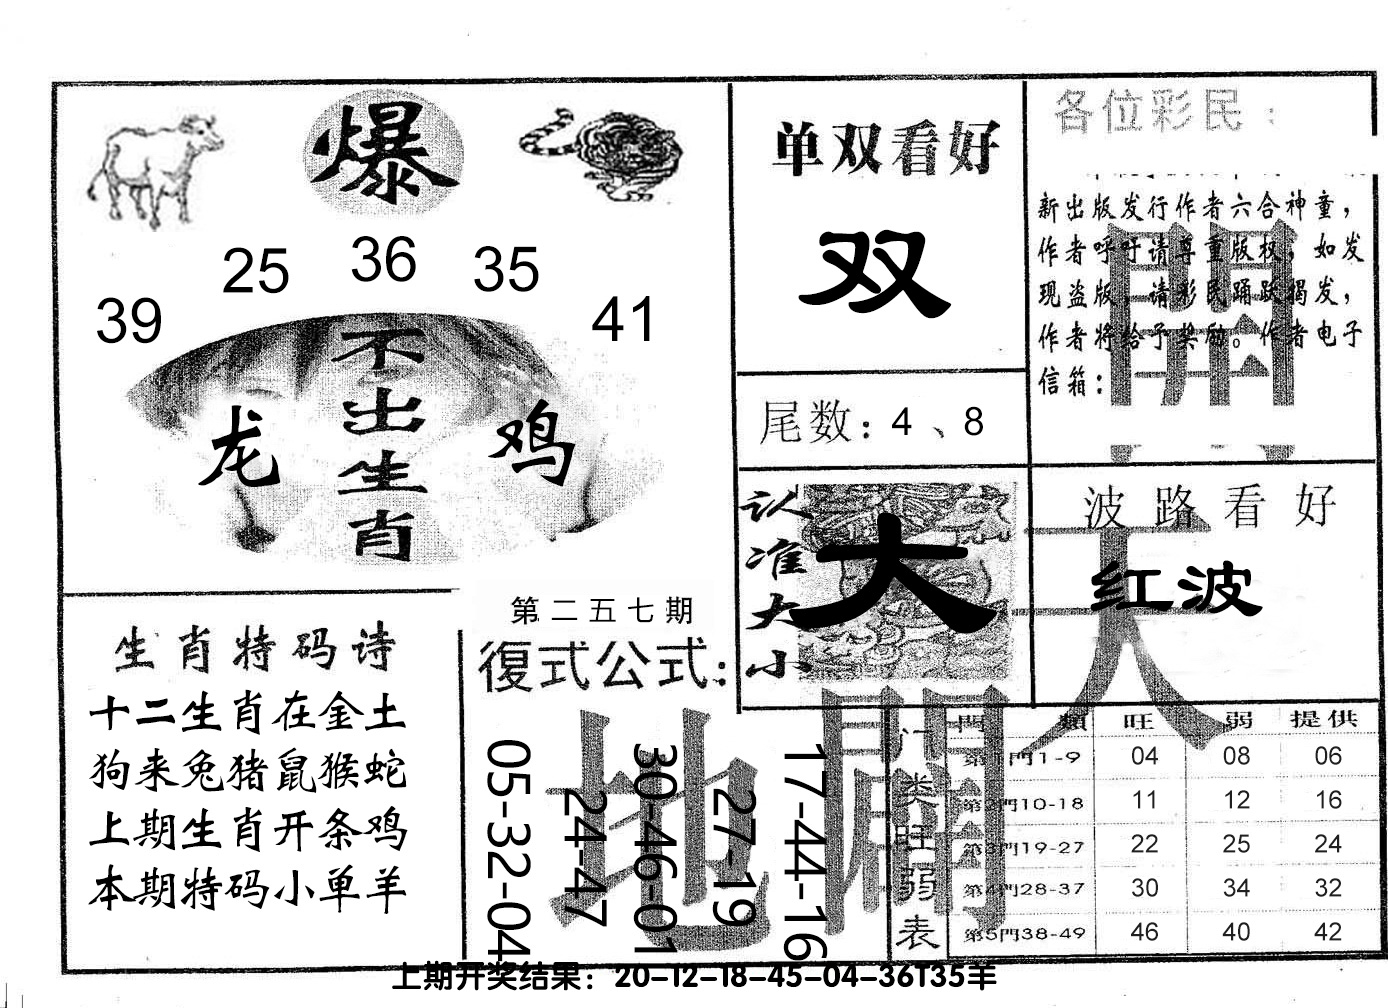 爆
39 25 36 35 41
不出生肖
龙 鸡
单双看好
双
尾数：4、8
各位彩民：
新出版发行作者六合神童，
作者呼吁请尊重版权，如发
现盗版，请彩民踊跃揭发，
作者将给予奖励。作者电子
信箱：
認准大小
大
波路看好
红波
天
開
地
闢
生肖特码诗
十二生肖在金土
狗来兔猪鼠猴蛇
上期生肖开条鸡
本期特码小单羊
第二五七期
復式公式：
05-32-04
24-47
30-46-01
27-19
17-44-16
门类旺弱表
門類 旺 弱 提供
第1門1-9 04 08 06
第2門10-18 11 12 16
第3門19-27 22 25 24
第4門28-37 30 34 32
第5門38-49 46 40 42
上期开奖结果：20-12-18-45-04-36T35羊